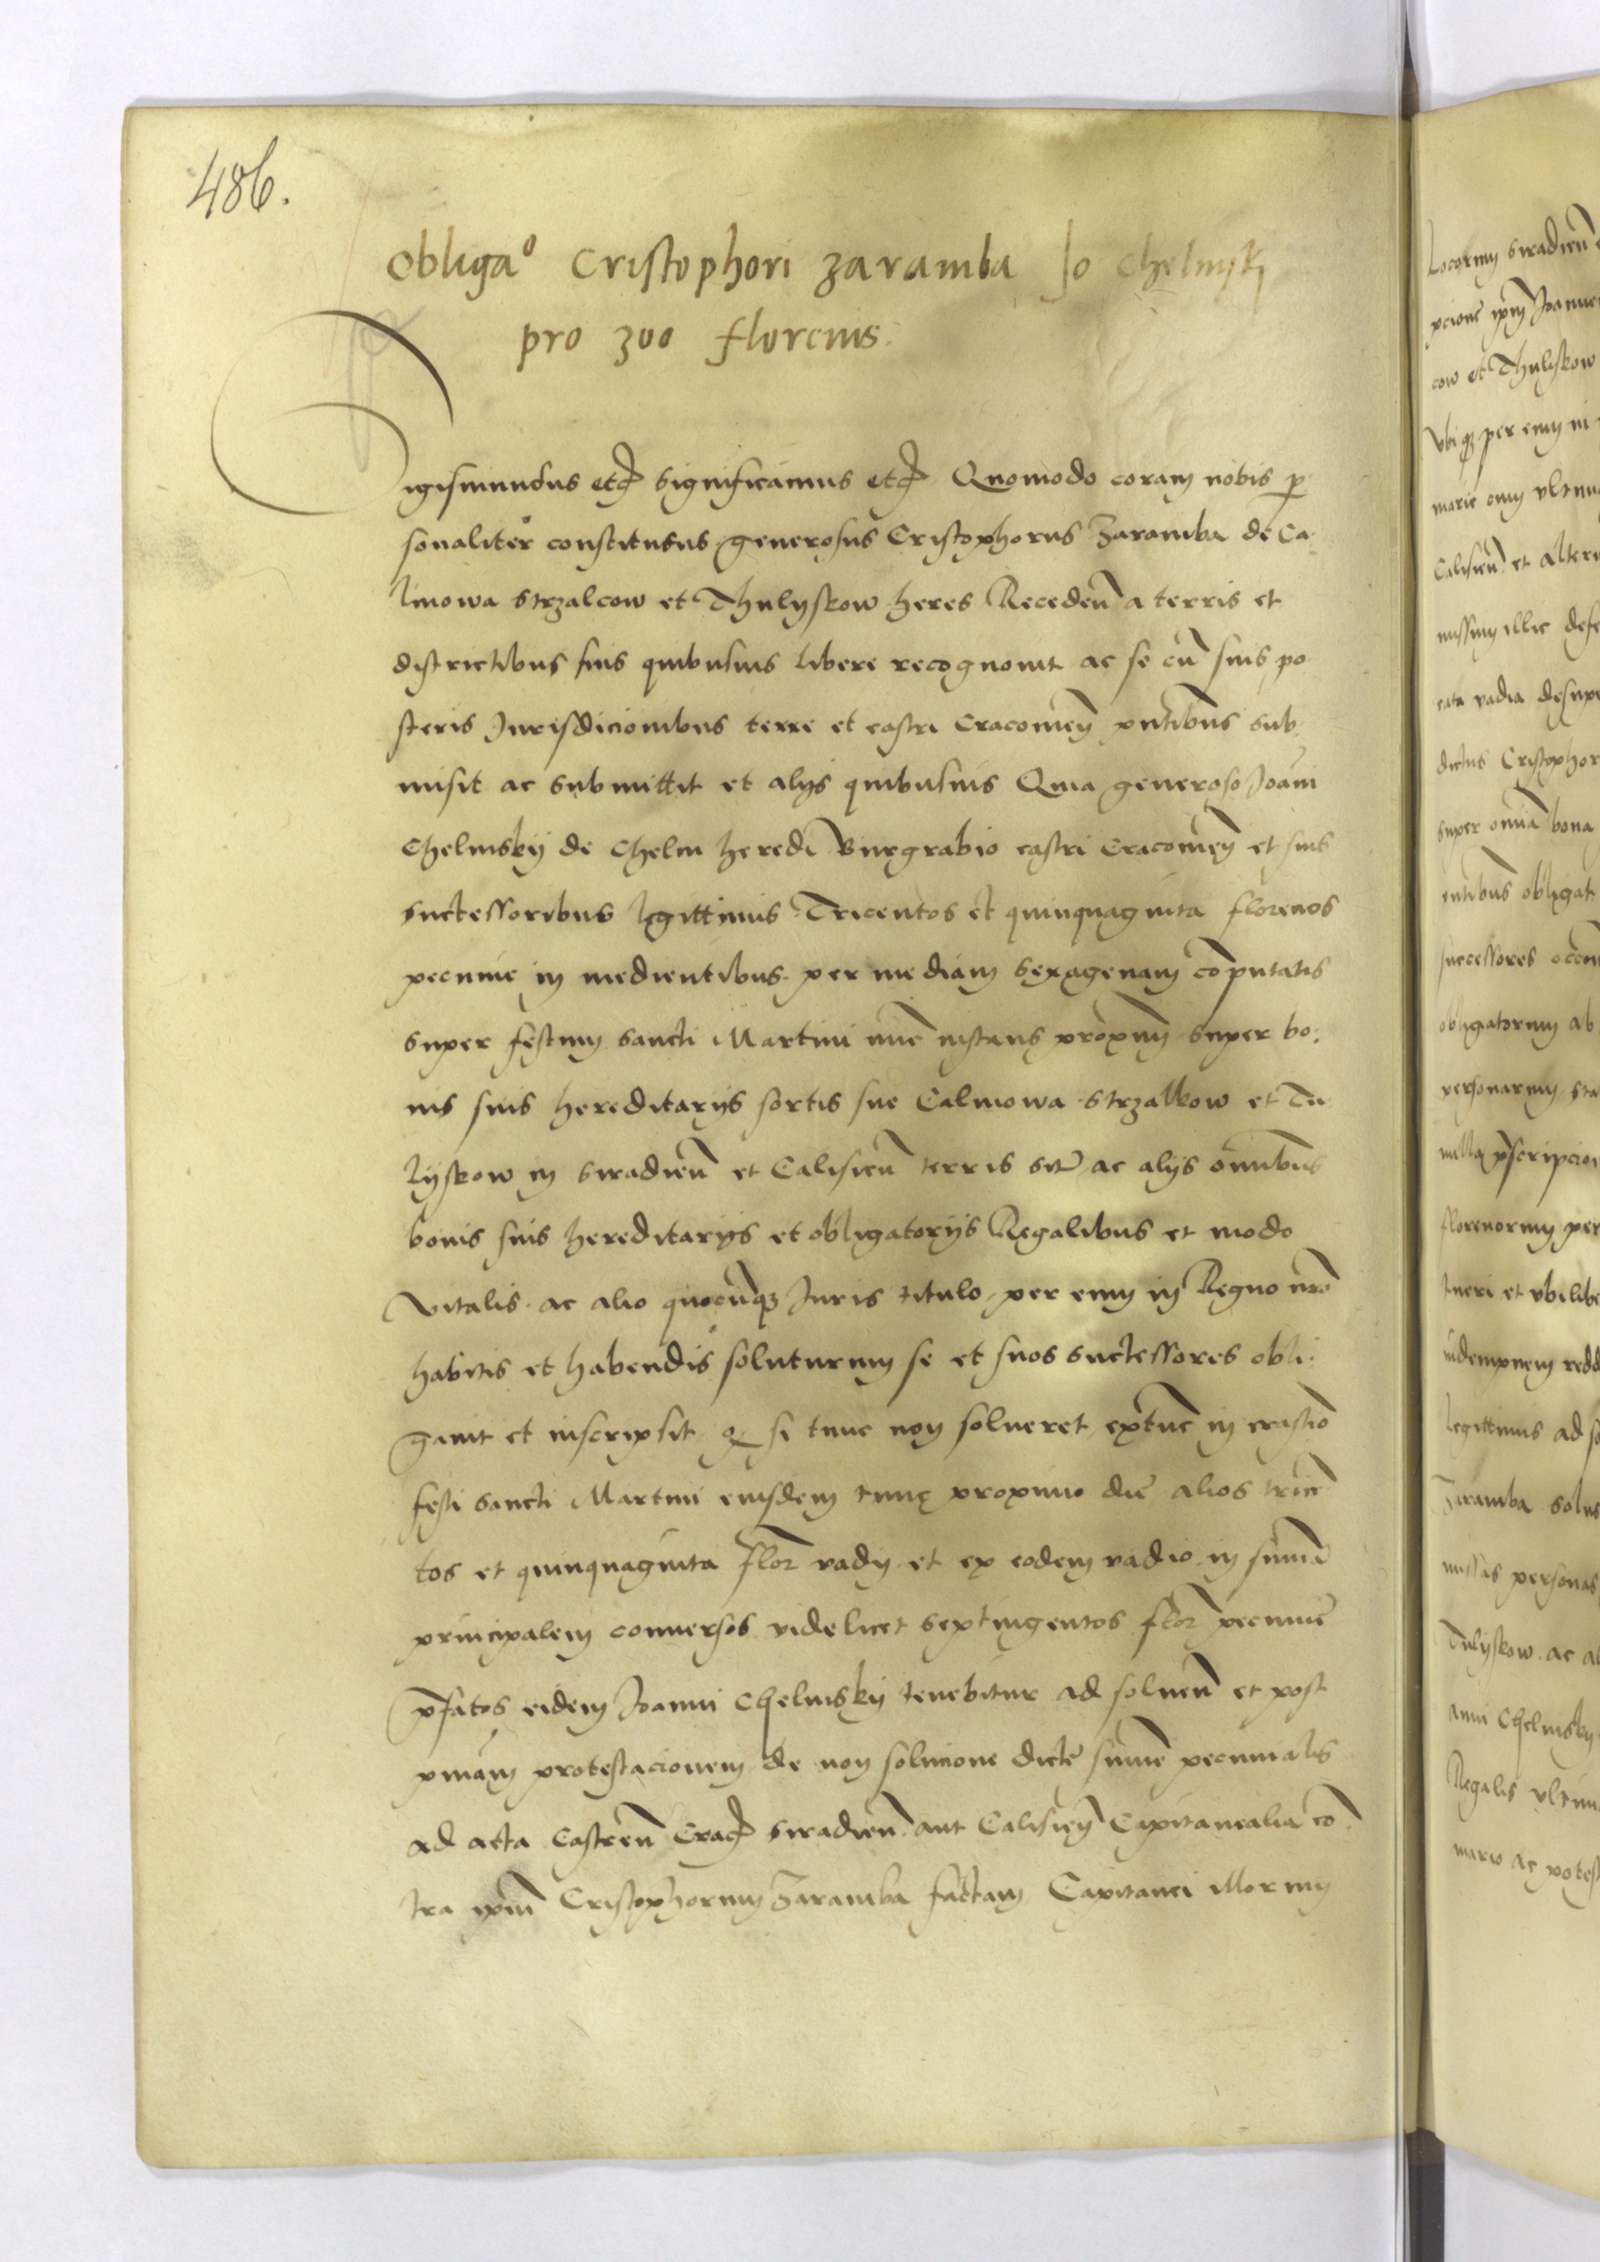 486.
Obliga° Cristophori Zaramba Jo Chelmskj
pro 300 florenis.
Sigismundus etc Significamus etc Quomodo coram nobis per
sonaliter constitutus generosus Cristophorus Zaramba de Ca
linowa Strzalcow et Thulyskow heres Recedeñ a terris et
districtibus suis quibusuis libere recognouit ac se cũ suis po
steris Jurisdicionibus terre et castri Cracouieñ pñtibus sub
misit ac submittit et alijs quibusuis Quia generoso Joãni
Chelmskij de Chelm heredi Burgrabio castri Cracouieñ et suis
successoribus legittimis Tricentos et quinquaginta florenos
pecunie in medientibus per mediam sexagenam cõputatis
super festum sancti Martini nũc instans proxĩm super bo
nis suis hereditarijs sortis sue Calinowa Strzalkow et Tu
lyskow in Siradieñ et Calisieñ terris sit̃ ac alijs oñibus
bonis suis hereditarijs et obligatorijs Regalibus et modo
vitalis ac alio quocũq₃ Juris titulo per eum in Regno nr̃o
habitis et habendis soluturum se et suos successores obli
gauit et inscripsit q₃ si tunc non solueret extunc in crastĩo
festi sancti Martini eiusdem tunc proximo die alios tricẽ
tos et quinquaginta flor vadij et ex eodem vadio in sum̃ã
principalem conuersos videlicet septingentos flor pecunie
p̃fatos eidem Joanni Chelmskij tenebitur ad solueñ et post
primam protestacionem de non solucione dicte sum̃e pecunialis
ad acta Castreñ Crac Siradieñ aut Calisieñ Capitanealia cõ
tra ip̃m Cristophorum Zaramba factam Capitanei illorum
locorum Siradieñ
ipm Joannem
cow et Thulyskow
vbiq₃ per eum in
Calisieñ et alteru
missum illic
rata vadia desuper
dictus Cristophor
super om̃ia bona
obligat
successores
obligatorum ab
personarum
nulla p̃scripcion
florenorum per
tueri et vbilibe
indempnem redd
legittimis ad so
Zaramba solue
missas personas
Tulyskow ac al
anni Chelmskij
Regalis